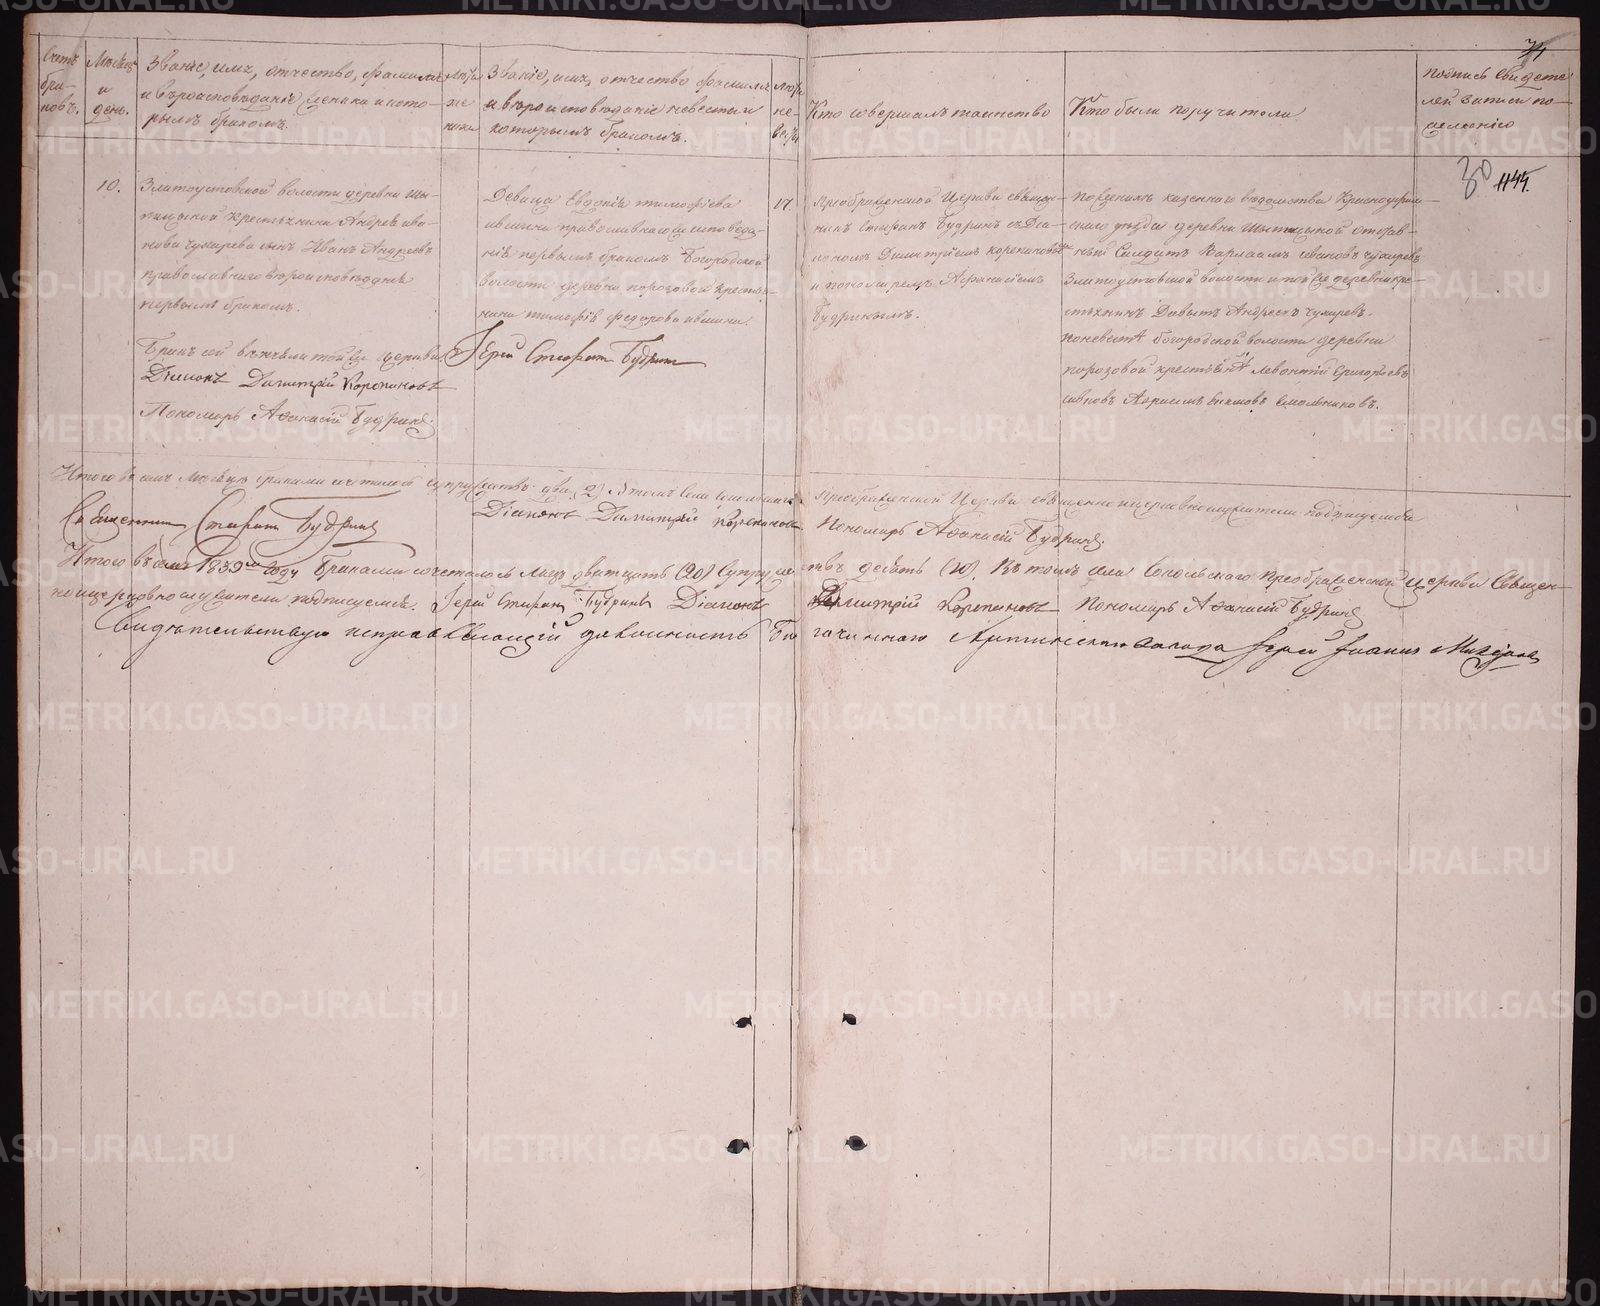 Счетъ бра-ковъ.
Мѣсяцъ и день.
Званіе, имя, отчество, фамилія
и вѣроисповѣданіе жениха и кото-
рымъ бракомъ.
Лѣта же-ниха
Званіе, имя, отчество фамилія
и вѣроисповѣданіе невесты и
которымъ бракомъ.
Лѣта не-весты
Кто совершалъ таинство
Кто были поручители
Подпись свидете
лей записи по
желанію
71
30 1144.
10.
Златоустовской волости деревни Шы-
пицыной крестьянина Андрея ива-
нова Чухарева сынъ Иванъ Андреевъ
православнаго вероисповѣданія
первымъ бракомъ.
Девица Евдокія тимофеева
православнаго исповеда-
нія первымъ бракомъ Богородской
волости деревни порозовой крестья-
нина тимофея федорова
17
Преображенской Церкви священ-
никъ Стефанъ Будринъ съ Діа-
кономъ Димитріемъ Корепановымъ
и пономаремъ Афанасіемъ
Будринымъ.
По женихѣ казеннаго ведомства Красноуфим-
скаго уѣзда деревни Шыпицыной отстав-
ный Салдатъ Варлаамъ ивановъ Чухаревъ
Златоустовской волости и той же деревни кре-
стьянинъ Давыдъ Андреевъ Чухаревъ.
По невестѣ богородской волости деревни
порозовой крестьяне Левонтій Григорьевъ
Смольниковъ.
Бракъ сей вѣнчали той же Церкви
Іерей Стефанъ Будринъ
Діаконъ Димитрій Корепановъ
Пономарь Афанасій Будринъ.
Итого въ семъ мѣсяцѣ браками сочеталось супружествъ два (2)
Преображенской Церкви священноицерковнослужители подписуемся
Священникъ Стефанъ Будринъ Діаконъ Димитрій Корепановъ Пономарь Афанасій Будринъ.
Итого въ семъ 1839мъ году Браками сочеталось лицъ двадцать (20) Супружествъ десять (10). Въ томъ села Сокольскаго Преображенской Церкви Священ-
ноицерковнослужители подписуемся. Іерей Стефанъ Будринъ Діаконъ Димитрій Корепановъ Пономарь Афанасій Будринъ
Свидѣтельствую исправляющій должность Благочиннаго Артинскаго завода Іерей Іоаннъ
METRIKI.GASO-URAL.RU